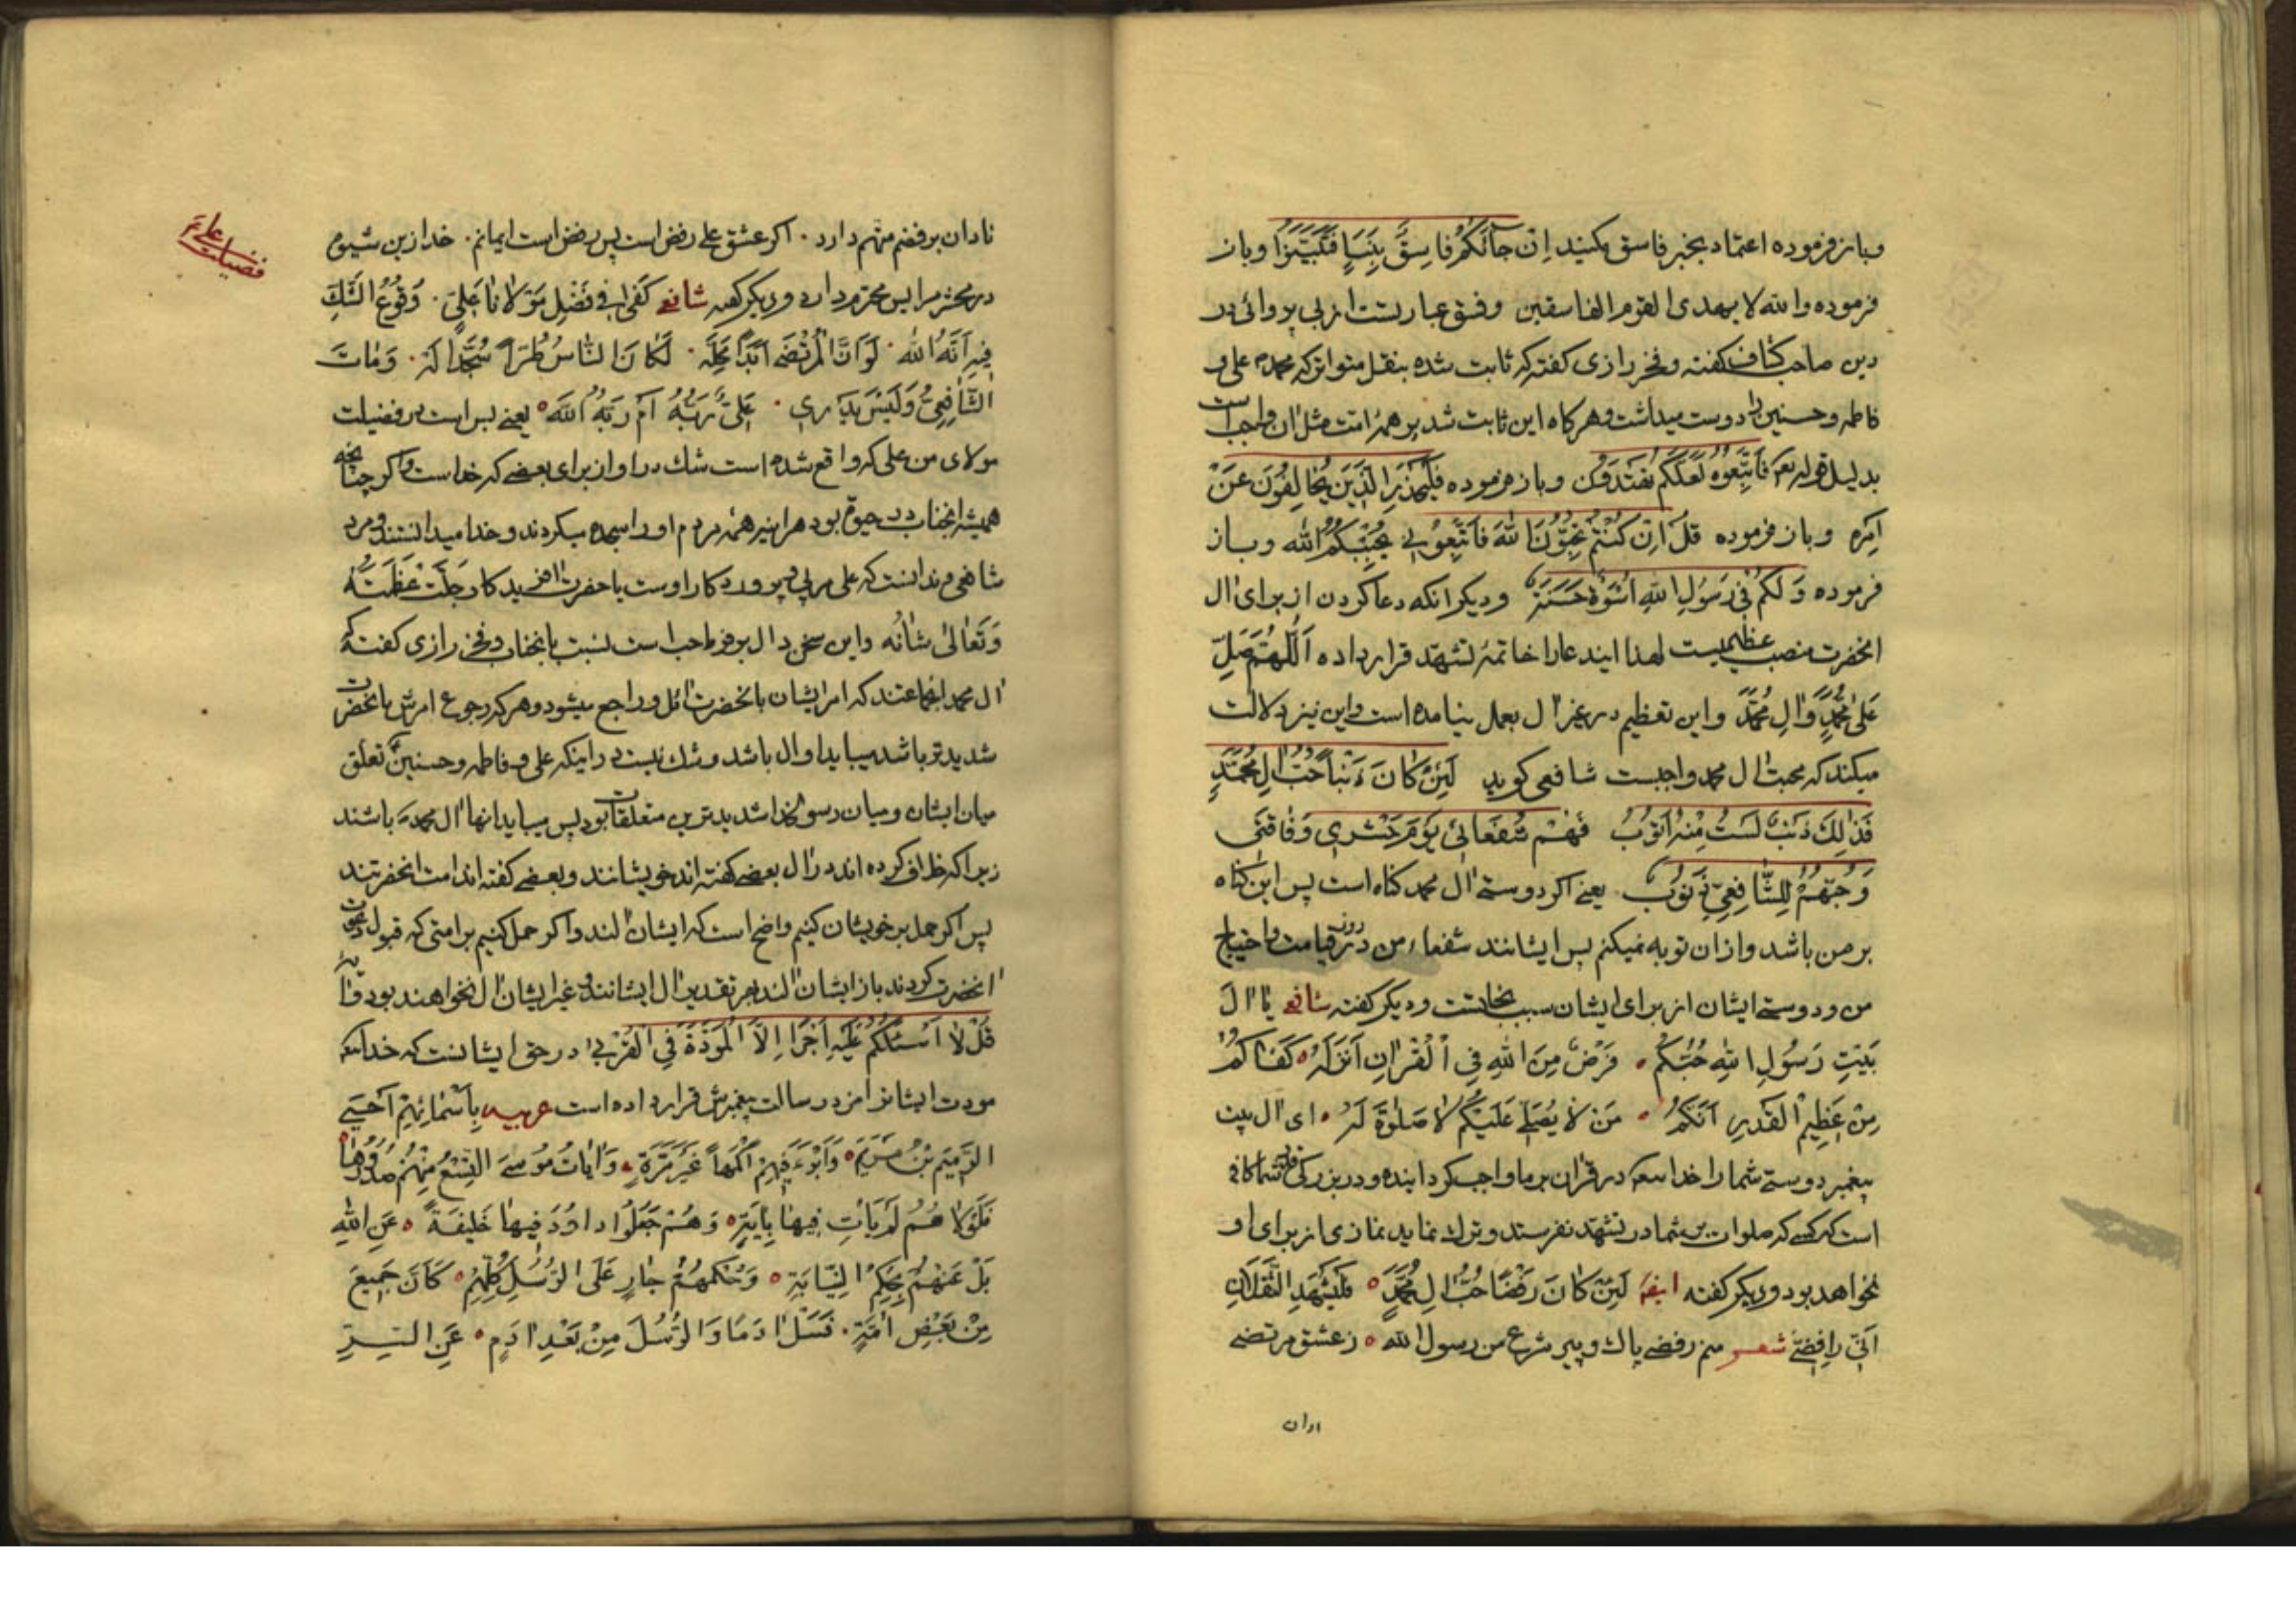 و باز فرموده اعتماد بخبر فاسق مکنید اِنْ جآئَکُمْ فاسِقٌ بِنَبَاءٍ فَتَبَیَّنَوُا و باز
فرموده والله لا یهدی القوم الفاسقین و فسق عبارتست از بی پروائی در
دین صاحب کشاف کفته و فخر رازی کفته که ثابت شده بنقل متواتر که محمد علی و
فاطمه و حسنین را دوست میداشت و هرکاه این ثابت شد بر همهٔ امت مثل آن واجب است
بدلیل قوله تعم فَاتَّبِعُوهُ لَعَلَّکُم تَهْتَدُون و باز فرموده فَلْیَحْذَرِ الَّذینَ یُخالِفُونَ عَنْ
اَمْرِهِ و باز فرموده قُلْ اِنْ کُنْتُمْ تُحِبُّونَ اللهَ فَاتَّبِعُوبی یُحْبِبْکُمُ الله و باز
فرموده وَ لَکُمْ فی رَسُولِ اللهِ اُسْوَةٌ حَسَنَةٌ و دیکر انکه دعا کردن از برای ال
انحضرت منصب عظیمیست لهذا ایندعا را خاتمهٔ تشهد قرار داده اَللّهُمَّ صَلِّ
عَلی مُحَمَّدٍ وَ الِ مُحَمَّدٍ و این تعظیم در غیر ال بعمل نیامده است و این نیز دلالت
میکند که محبت ال محمد واجبست شافعی کوید لَئِنْ کانَ ذَنْباً حُبُّ الِ مُحَمَّدٍ
فَذلِكَ ذَنْبٌ لَسْتُ مِنْهُ اَتُوبُ فَهُمْ شُفَعائی یَوْمَ حَشْری وَ فاقَتی
وَ حُبُّهُمُ لِلشّافِعِیِّ ذُنُوبٌ یعنی اکر دوستی ال محمد کناه است پس این کناه
بر من باشد و از ان توبه نمیکنم پس ایشانند شفعاء من در روز قیامت و احتیاج
من و دوستی ایشان از برای ایشان سبب نجاتست و دیکر کفته شافعی یا الَ
بَیْتِ رَسُولِ اللهِ حُبُّکُمْ فَرْضٌ مِنَ اللهِ فِی الْقُرْانِ اَنْزَلَهُ کَفاکُمُ
مِنْ عَظیمِ الْقَدرِ اَنَّکُمُ مَنْ لا یُصَلّی عَلَیْکُمْ لا صَلوةَ لَهُ ای ال بیت
پیغمبر دوستی شما را خدا در قران بر ما واجب کردانیده و در بزرکی قدر شما کافی
است که کسی که صلوات بر شما در تشهد نفرستد و ترك نماید نمازی از برای او
نخواهد بود و دیکر کفته ایضا لَئِنْ کانَ رَفْضاً حُبُّ الِ مُحَمَّدٍ فَلْیَشْهَدِ الثَّقَلانِ
اَنّی رافِضی شعر منم رفضی پاك و پیر شرع من رسول الله ز عشق مرتضی
نادان برفضم متهم دارد اکر عشق علی رفض است پس رفض است ایمانم خدا زین شیوه
در محشر مرا بس محترم دارد و دیکر کفته شافعی کَفی فی فَضْلِ مَوْلانا عَلِیٍّ وُقُوعُ الشَّكِّ
فیهِ اَنَّهُ الله لَوْ اَنَّ الْمُرْتَضی اَبْدا مَحَلَّه لَکانَ النّاسُ طُرّاً سُجَّداً لَهُ وَ ماتَ
الشّافِعِیُّ وَ لَیْسَ یَدْری عَلِیٌّ رَبُّهُ اَمْ رَبُّهُ الله یعنی بس است در فضیلت
مولای من علی که واقع شده است شك در او از برای بعضی که خداست و اکر چنانچه
همیشه انجناب در جیوة بود هراینه همهٔ مردم او را سجده میکردند و خدا میدانستند و مرد
شافعی و ندانست که علی مربی و پروردکار اوست یا حضرت افریدکار جَلَّتْ عَظَمَتُهُ
وَ تَعالی شانُه و این سخن دال بر وفور محبت است نسبت بانجناب و فخر رازی کفته که
ال محمد انجماعتند که امر ایشان بانحضرت ائل و راجع میشود و هر که رجوع امرش بانحضرت
شدیدتر باشد میباید او ال باشد و شك نیست در اینکه علی و فاطمه و حسنین تعلق
میان ایشان و میان رسول خدا شدیدترین متعلقات بود پس میباید انها ال محمد باشند
زیرا که خلاف کرده اند در ال بعضی کفته اند خویشانند و بعضی کفته اند امت انحضرتند
پس اکر حمل بر خویشان کنیم واضح است که ایشان الند و اکر حمل کنیم بر امتی که قبول دعوت
انحضرت کردند باز ایشان الند بهر تقدیر ال ایشانند و غیر ایشان ال نخواهند بود و ایه
قُلْ لا اَسْئَلُکُمْ عَلَیْهِ اَجْراً اِلاَّ الْمَوَدَّةَ فِی الْقُرْبی در حق ایشانست که خدا
مودت ایشانرا مزد رسالت پیغمبرش قرار داده است عربیه بِاَسْمائِهِمْ اَحْیَی
الرَّمیمَ بْنُ مَرْیَمَ وَ اَبْرَءَ فیهِمْ اَکْمَهاً غَیْرَ مَرَّةٍ وَ ایاتُ مُوسیَ التِّسْعُ مِنْهُمْ صُدُورُها
فَلَوْلا هُمُ لَمْ یَأتِ فیها بِایَةٍ وَ هُمْ جَعَلُوا داوُدَ فیها خَلیفَةً عَنِ اللهِ
بَلْ عَنْهُمْ بِحُکْمِ النِّیابَةِ وَ حُکْمُهُمُ جارٍ عَلَی الرُّسُلِ کُلِّهِمْ کَانَ جَمیعَ
مِنْ بَعْضِ اُمَّةٍ فَسَلْ ادَمًا وَ الرُّسْلَ مِنْ بَعْدِ ادَمٍ عَنِ السِّرِّ
فضیلت علی ع